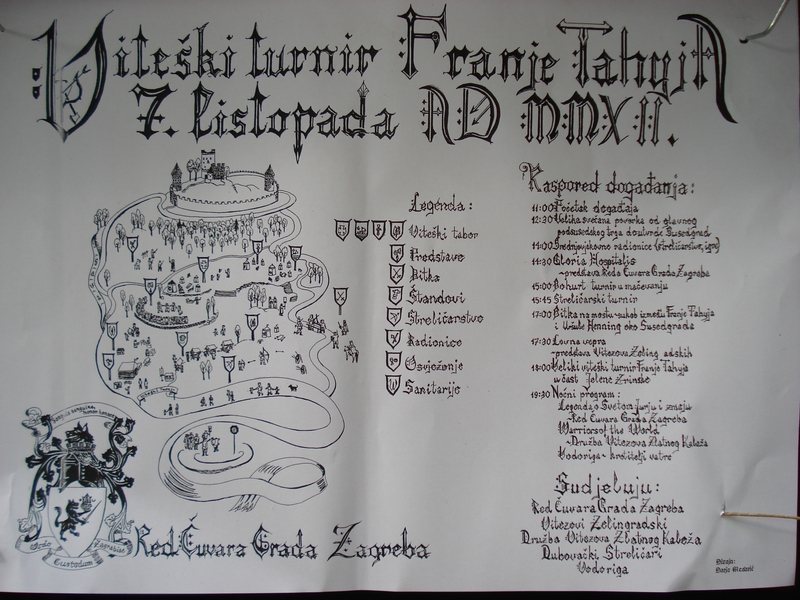 Viteški turnir Franje Tahyja
7. listopada AD MMXII.
Legenda:
Viteški tabor
Predstave
Bitka
Štandovi
Streličarstvo
Radionice
Osvježenje
Sanitarije
Raspored događanja:
11:00 Početak događaja
12:30 Velika svečana povorka od glavnog
podsusedskog trga do utvrde Susedgrad
14:00 Srednjovjekovne radionice (streličarstvo, igre)
14:30 Gloria Hospitalis
~predstava Reda Čuvara Grada Zagreba
15:00 Bohurt turnir u mačevanju
15:45 Streličarski turnir
17:00 Bitka na mostu-sukob između Franje Tahyja
i Uršule Henning oko Susedgrada
17:30 Lovna vepra
~predstava Vitezova Zelingradskih
18:00 Veliki viteški turnir Franje Tahyja
u čast Jelene Zrinske
19:30 Noćni program:
Legenda o Svetom Jurju i zmaju
~Red Čuvara Grada Zagreba
Warriors of the World
~Družba Vitezova Zlatnog Kaleža
Vodoriga~ krotitelji vatre
Sudjeluju:
Red Čuvara Grada Zagreba
Vitezovi Zelingradski
Družba Vitezova Zlatnog Kaleža
Dubovački Streličari
Vodoriga
Ordo Custodum Zagrabiae
Red Čuvara Grada Zagreba